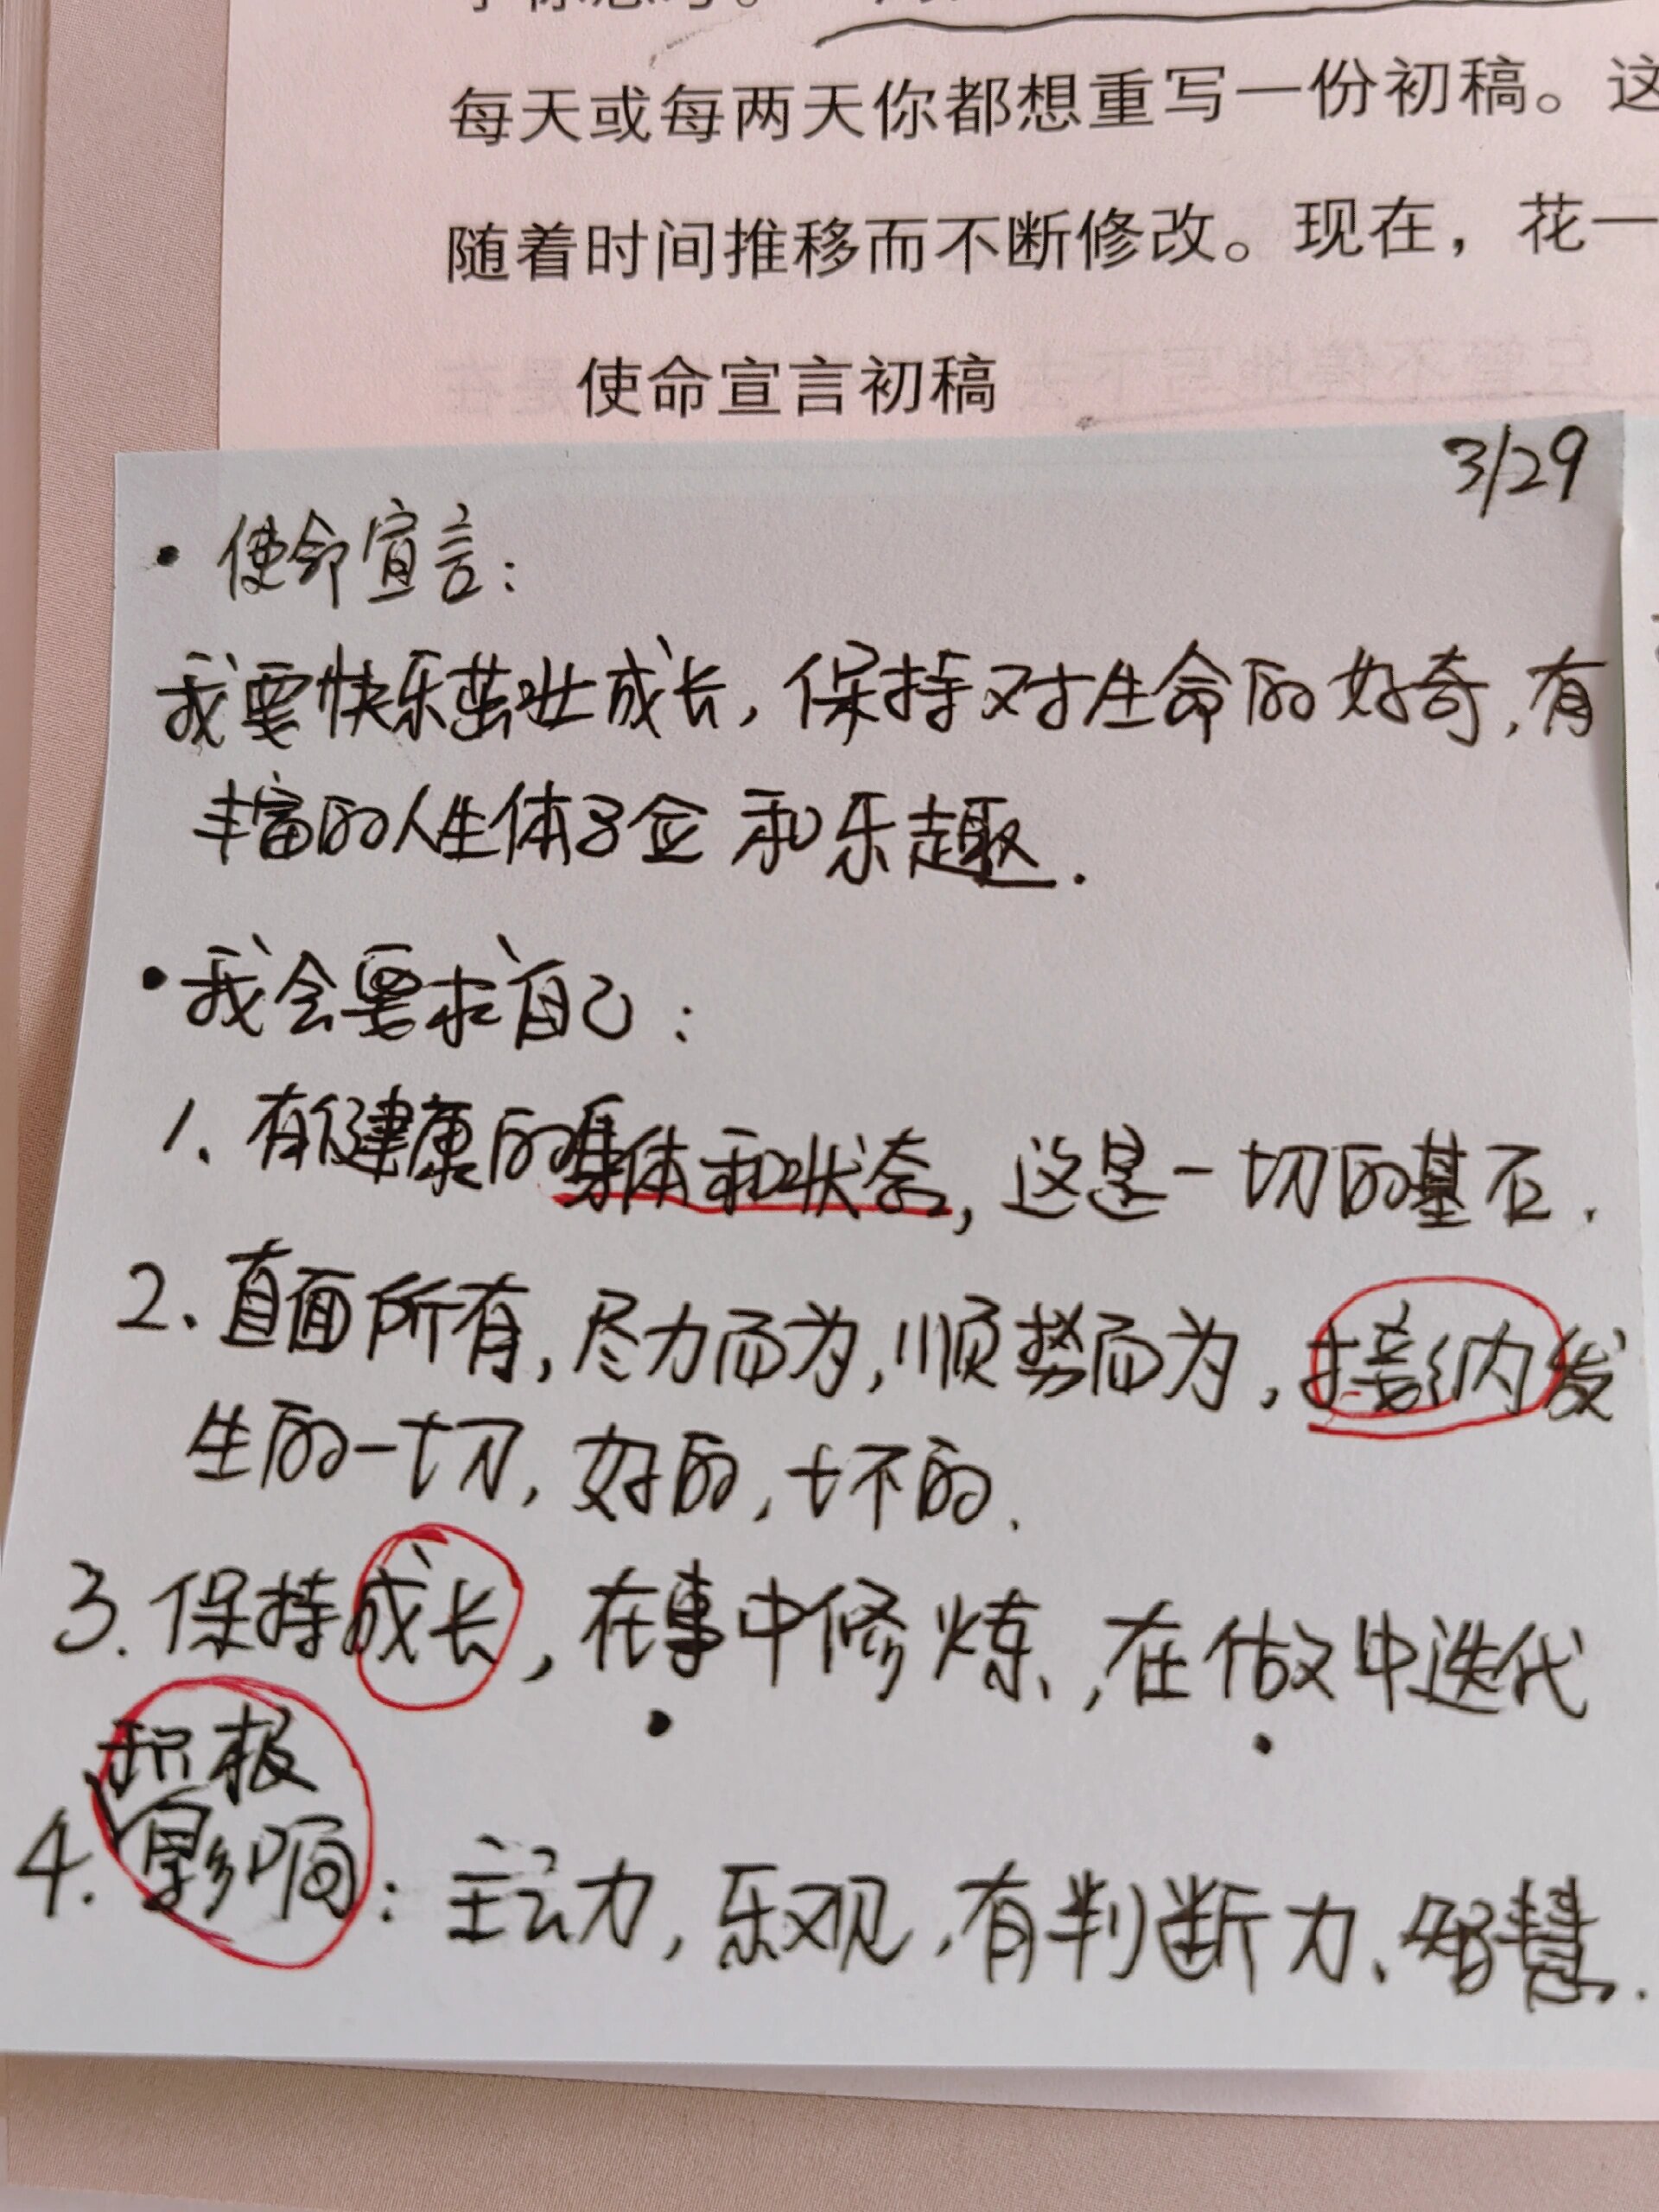 每天或每两天你都想重写一份初稿。这
随着时间推移而不断修改。现在，花一
使命宣言初稿
3/29
• 使命宣言：
我要快乐茁壮成长，保持对生命的好奇，有
丰富的人生体验和乐趣.
• 我会要求自己：
1、有健康的身体和状态，这是一切的基石.
2、直面所有，尽力而为，顺势而为，接纳发
生的一切，好的，坏的.
3.保持成长，在事中修炼，在做中迭代
积极
4.影响：主动，乐观，有判断力、智慧.